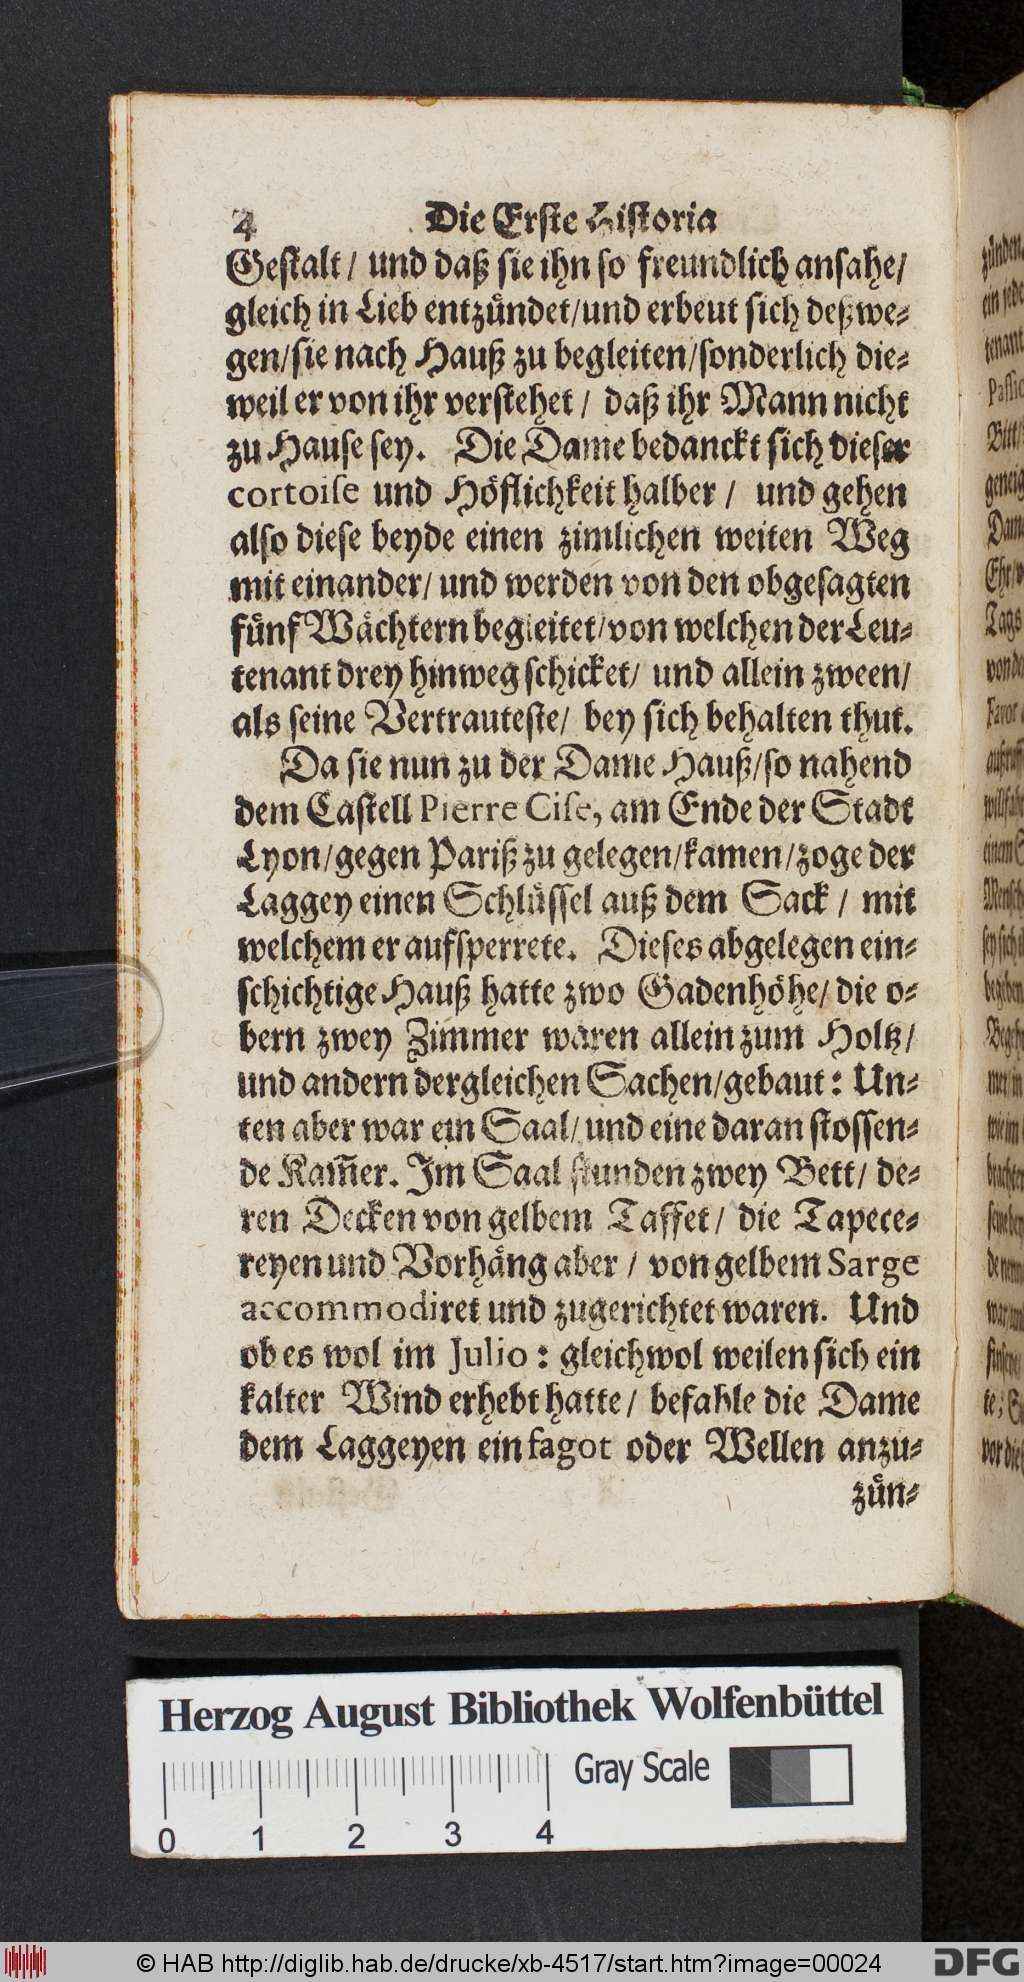 4 Die Erste Historia
Gestalt / und daß sie ihn so freundlich ansahe/
gleich in Lieb entzuͤndet/und erbeut sich deßwe⸗
gen/sie nach Hauß zu begleiten/sonderlich die⸗
weil er von ihr verstehet / daß ihr Mann nicht
zu Hause sey. Die Dame bedanckt sich dieser
cortoise und Hoͤflichkeit halber / und gehen
also diese beyde einen zimlichen weiten Weg
mit einander/ und werden von den obgesagten
fuͤnf Waͤchtern begleitet/von welchen der Leu⸗
tenant drey hinweg schicket/ und allein zween/
als seine Vertrauteste/ bey sich behalten thut.
Da sie nun zu der Dame Hauß/so nahend
dem Castell Pierre Cise, am Ende der Stadt
Lyon/gegen Pariß zu gelegen/kamen/zoge der
Laggey einen Schluͤssel auß dem Sack / mit
welchem er aufsperrete. Dieses abgelegen ein⸗
schichtige Hauß hatte zwo Gadenhoͤhe/ die o⸗
bern zwey Zimmer waren allein zum Holtz/
und andern dergleichen Sachen/gebaut: Un⸗
ten aber war ein Saal/ und eine daran stossen⸗
de Kam̃er. Im Saal stunden zwey Bett/ de⸗
ren Decken von gelbem Taffet/ die Tapece⸗
reyen und Vorhaͤng aber / von gelbem Sarge
accommodiret und zugerichtet waren. Und
ob es wol im Julio: gleichwol weilen sich ein
kalter Wind erhebt hatte/ befahle die Dame
dem Laggeyen ein fagot oder Wellen anzu⸗
zuͤn⸗
Herzog August Bibliothek Wolfenbüttel
Gray Scale
0 1 2 3 4
© HAB http://diglib.hab.de/drucke/xb-4517/start.htm?image=00024
DFG